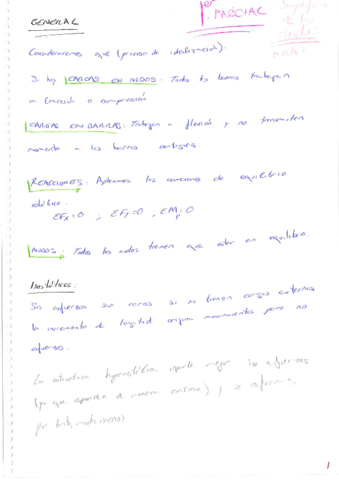 1er PARCIAL
GENERAL
Consideraremos que (proceso de idealización):
Si hay CARGAS EN NUDOS: Todas las barras trabajan
a tracción o compresión
CARGAS EN BARRAS: Trabajan a flexión y no transmiten
momento a las barras contiguas.
REACCIONES: Aplicamos las ecuaciones de equilibrio
estático.
EFx=0 , EFy=0 , EMp=0
NUDOS: Todos los nudos tienen que estar en equilibrio.
Isostáticas:
Sus esfuerzos son ceros si no tienen cargas externas
Un incremento de longitud origina movimientos pero no
esfuerzos.
La estructura hiperestática reparte mejor los esfuerzos
(ya que reparten de manera continua) y
por tanto,
1